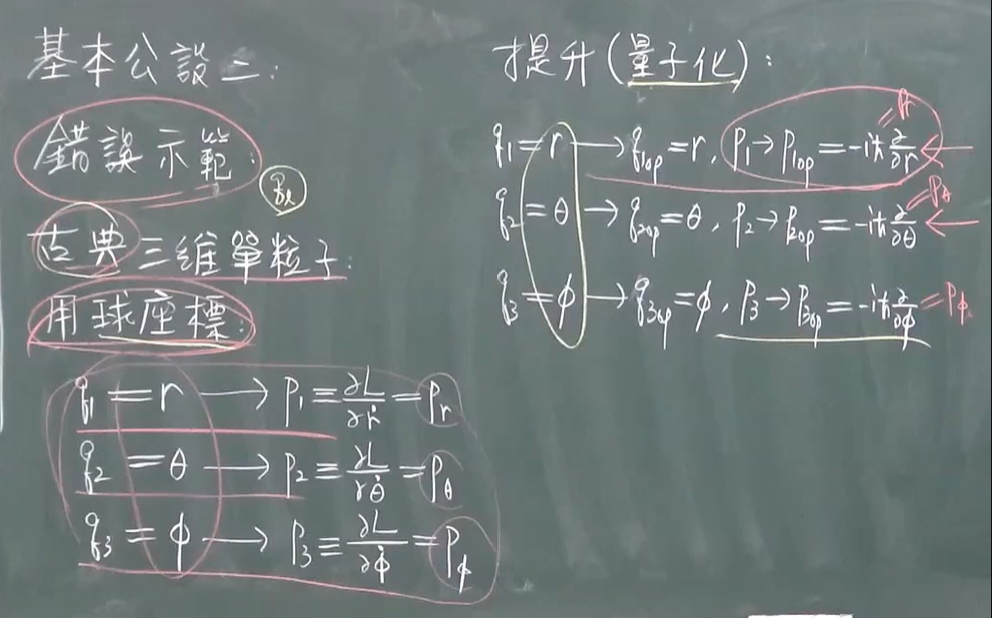 基本公設二:
錯誤示範:
q_k
古典三維單粒子:
用球座標:
q₁ = r → p₁ ≡ ∂L/∂ṙ = p_r
q₂ = θ → p₂ ≡ ∂L/∂θ̇ = p_θ
q₃ = ϕ → p₃ ≡ ∂L/∂ϕ̇ = p_ϕ
提升(量子化):
q₁ = r → q_{1op} = r, p₁ → p_{1op} = -iħ ∂/∂r
q₂ = θ → q_{2op} = θ, p₂ → p_{2op} = -iħ ∂/∂θ = p_θ
q₃ = ϕ → q_{3op} = ϕ, p₃ → p_{3op} = -iħ ∂/∂ϕ = p_ϕ